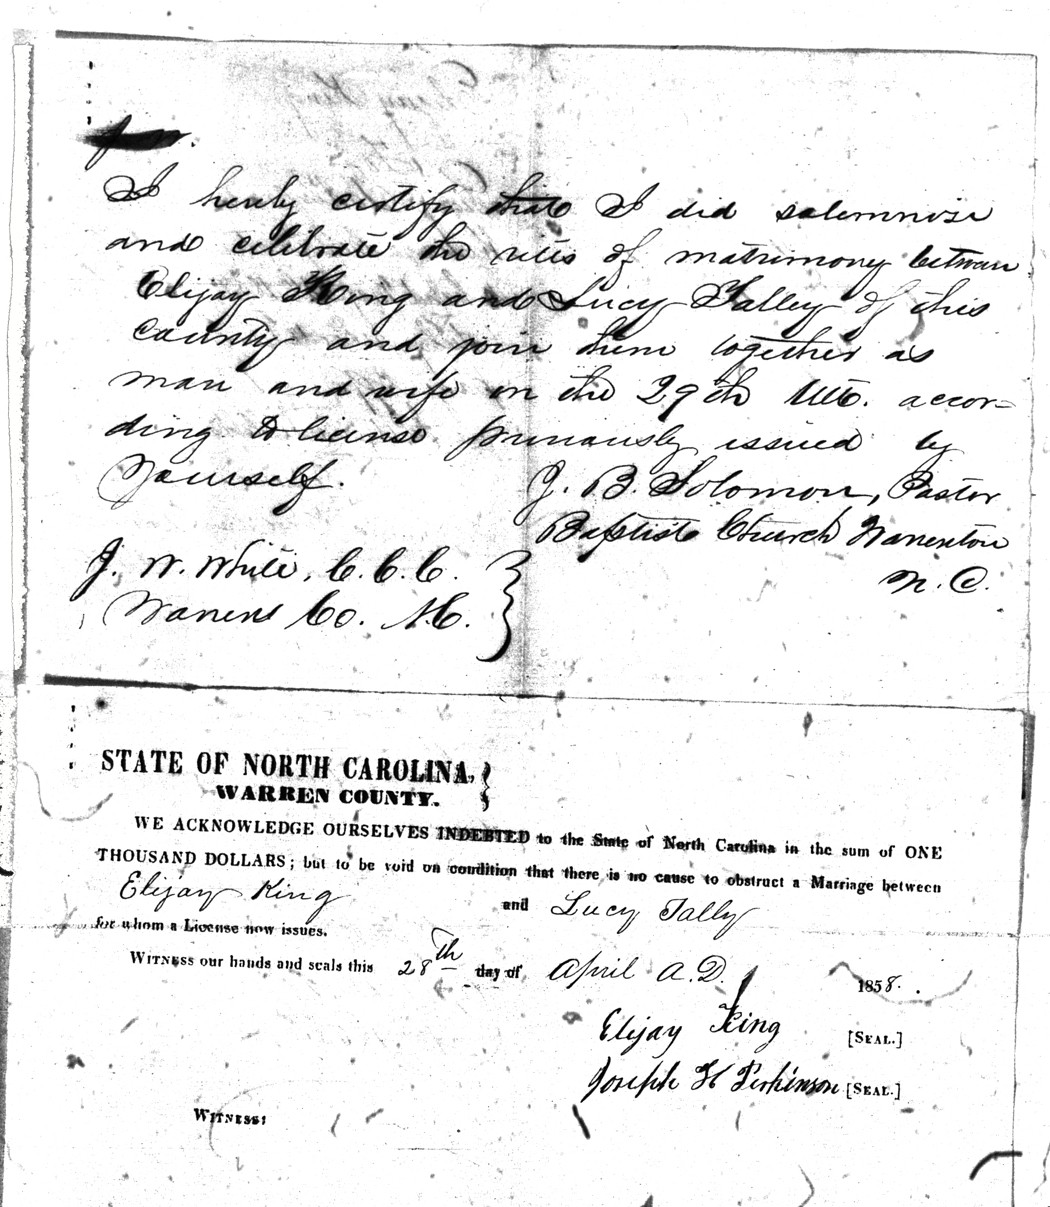 I hereby certify that I did solemnise
and celebrate the rites of matrimony between
Elijay King and Lucy Talley of this
County and join them together as
man and wife on the 29th Ult. accor-
ding to license previously issued by
Yourself.
J. B. Solomon, Pastor
Baptist Church Warrenton
N. C.
J. W. White, C. C. C.
Warren Co. N.C.
STATE OF NORTH CAROLINA,
WARREN COUNTY.
WE ACKNOWLEDGE OURSELVES INDEBTED to the State of North Carolina in the sum of ONE
THOUSAND DOLLARS; but to be void on condition that there is no cause to obstruct a Marriage between
Elijay King and Lucy Tally
for whom a License now issues.
WITNESS our hands and seals this 28th day of April A.D. 1858.
Elijay King [SEAL.]
Joseph H Perkinson [SEAL.]
WITNESS: